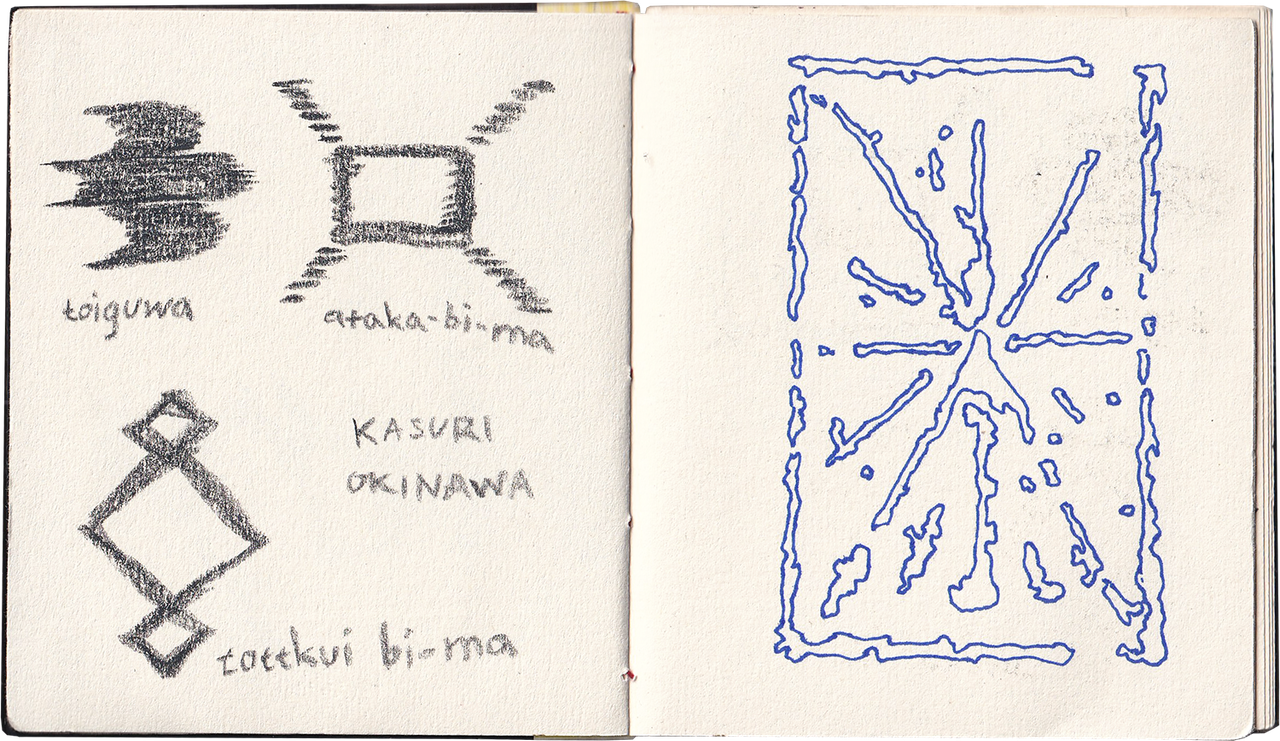 toiguwa
ataka-bi-ma
KASURI
OKINAWA
tottkui bi-ma